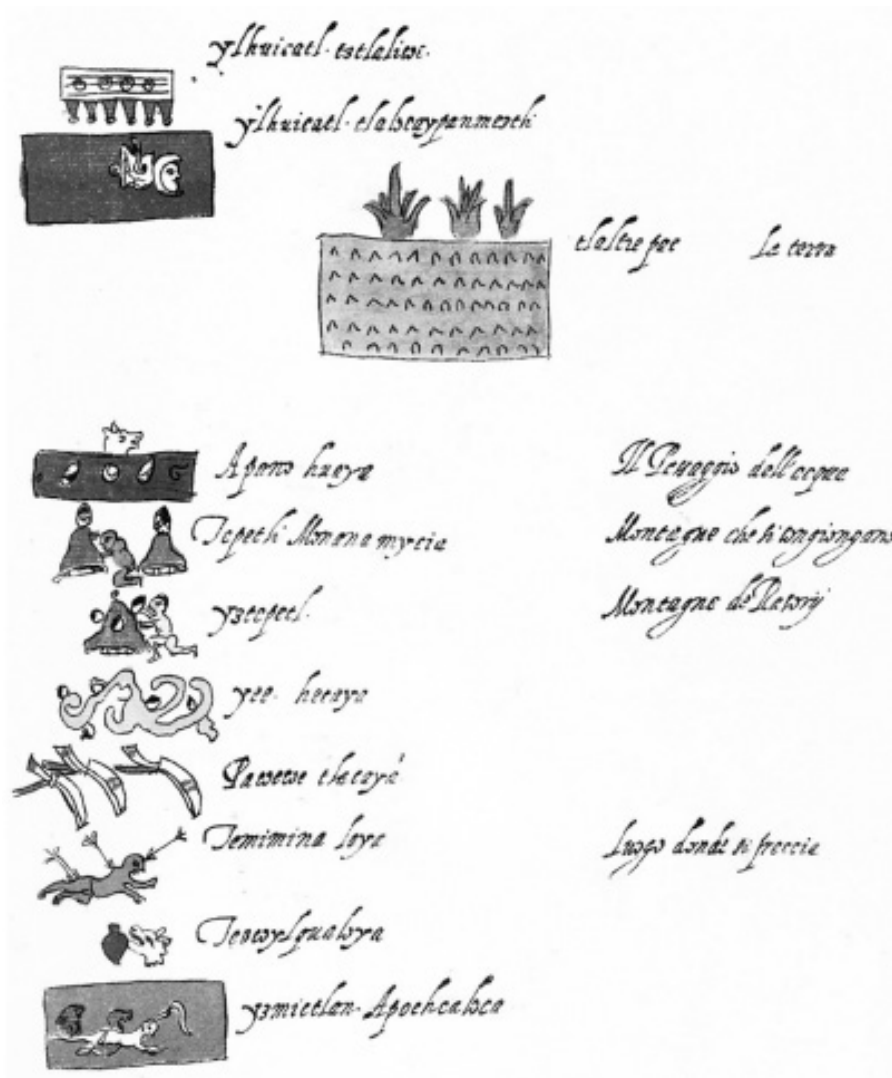 ylhuicatl.
ylhuicatl. tlalocaypanmeztli
tlaltic pac La terra
Apano huaya Il Passaggio dell'acqua
Tepetli Monana mycia Montagne che si congiongano
yztepetl. Montagna de Rasorij
yee. hecaya
Pacoecoe tlacaya
Temimina loya Luogo donde si freccia
Teocoylqualoya
yzmictlan. Apochcaloca